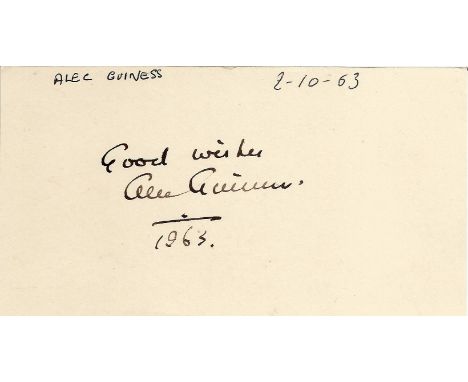 ALEC GUINESS 2-10-63
Good wishes
Alec Guinness.
1963.